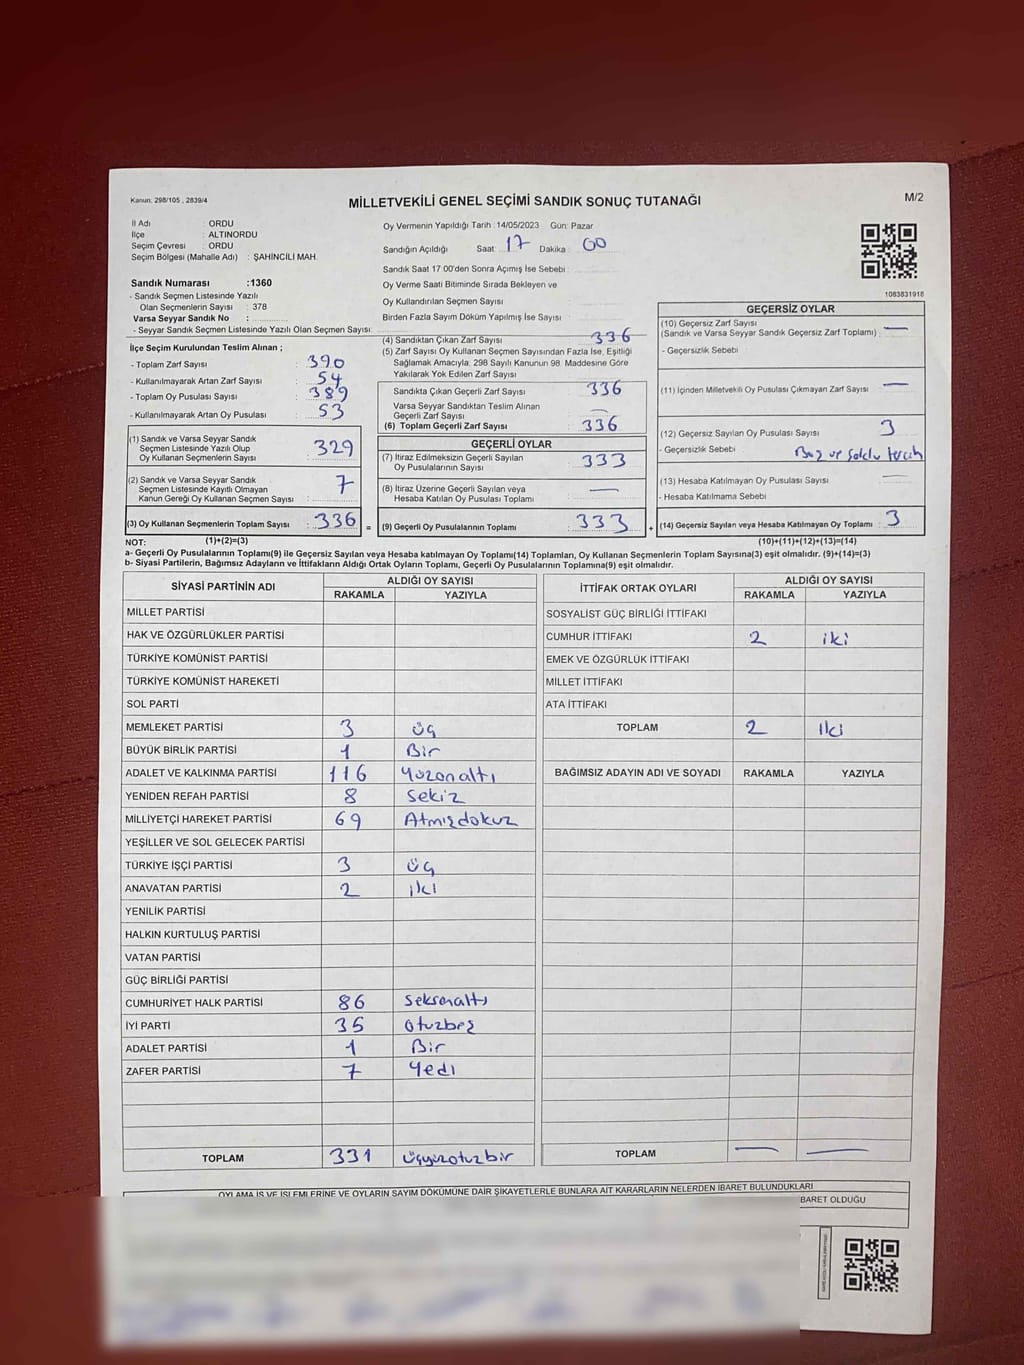 Kanun: 298/105 , 2839/4
MİLLETVEKİLİ GENEL SEÇİMİ SANDIK SONUÇ TUTANAĞI
M/2
İl Adı : ORDU
İlçe : ALTINORDU
Seçim Çevresi : ORDU
Seçim Bölgesi (Mahalle Adı) : ŞAHİNCİLİ MAH.
Oy Vermenin Yapıldığı Tarih : 14/05/2023 Gün: Pazar
Sandığın Açıldığı Saat: 17 Dakika: 00
Sandık Saat 17:00'den Sonra Açımış İse Sebebi :
Oy Verme Saati Bitiminde Sırada Bekleyen ve
Oy Kullandırılan Seçmen Sayısı :
Birden Fazla Sayım Döküm Yapılmış İse Sayısı :
1083831918
Sandık Numarası :1360
- Sandık Seçmen Listesinde Yazılı
Olan Seçmenlerin Sayısı : 378
Varsa Seyyar Sandık No :
- Seyyar Sandık Seçmen Listesinde Yazılı Olan Seçmen Sayısı:
İlçe Seçim Kurulundan Teslim Alınan ;
- Toplam Zarf Sayısı : 390
- Kullanılmayarak Artan Zarf Sayısı : 54
- Toplam Oy Pusulası Sayısı : 389
- Kullanılmayarak Artan Oy Pusulası : 53
(1) Sandık ve Varsa Seyyar Sandık
Seçmen Listesinde Yazılı Olup
Oy Kullanan Seçmenlerin Sayısı : 329
(2) Sandık ve Varsa Seyyar Sandık
Seçmen Listesinde Kayıtlı Olmayan
Kanun Gereği Oy Kullanan Seçmen Sayısı : 7
(3) Oy Kullanan Seçmenlerin Toplam Sayısı : 336 =
(4) Sandıktan Çıkan Zarf Sayısı : 336
(5) Zarf Sayısı Oy Kullanan Seçmen Sayısından Fazla İse, Eşitliği
Sağlamak Amacıyla, 298 Sayılı Kanunun 98. Maddesine Göre
Yakılarak Yok Edilen Zarf Sayısı :
Sandıkta Çıkan Geçerli Zarf Sayısı : 336
Varsa Seyyar Sandıktan Teslim Alınan
Geçerli Zarf Sayısı : —
(6) Toplam Geçerli Zarf Sayısı : 336
GEÇERLİ OYLAR
(7) İtiraz Edilmeksizin Geçerli Sayılan
Oy Pusulalarının Sayısı : 333
(8) İtiraz Üzerine Geçerli Sayılan veya
Hesaba Katılan Oy Pusulası Toplamı : —
(9) Geçerli Oy Pusulalarının Toplamı : 333 +
GEÇERSİZ OYLAR
(10) Geçersiz Zarf Sayısı
(Sandık ve Varsa Seyyar Sandık Geçersiz Zarf Toplamı) : —
- Geçersizlik Sebebi :
(11) İçinden Milletvekili Oy Pusulası Çıkmayan Zarf Sayısı : —
(12) Geçersiz Sayılan Oy Pusulası Sayısı : 3
- Geçersizlik Sebebi :
(13) Hesaba Katılmayan Oy Pusulası Sayısı : —
- Hesaba Katılmama Sebebi :
(14) Geçersiz Sayılan veya Hesaba Katılmayan Oy Toplamı : 3
NOT: (1)+(2)=(3) (10)+(11)+(12)+(13)=(14)
a- Geçerli Oy Pusulalarının Toplamı(9) ile Geçersiz Sayılan veya Hesaba katılmayan Oy Toplamı(14) Toplamları, Oy Kullanan Seçmenlerin Toplam Sayısına(3) eşit olmalıdır. (9)+(14)=(3)
b- Siyasi Partilerin, Bağımsız Adayların ve İttifakların Aldığı Ortak Oyların Toplamı, Geçerli Oy Pusulalarının Toplamına(9) eşit olmalıdır.
SİYASİ PARTİNİN ADI ALDIĞI OY SAYISI
RAKAMLA YAZIYLA
MİLLET PARTİSİ
HAK VE ÖZGÜRLÜKLER PARTİSİ
TÜRKİYE KOMÜNİST PARTİSİ
TÜRKİYE KOMÜNİST HAREKETİ
SOL PARTİ
MEMLEKET PARTİSİ 3 üç
BÜYÜK BİRLİK PARTİSİ 1 Bir
ADALET VE KALKINMA PARTİSİ 116 Yüzonaltı
YENİDEN REFAH PARTİSİ 8 Sekiz
MİLLİYETÇİ HAREKET PARTİSİ 69 Atmışdokuz
YEŞİLLER VE SOL GELECEK PARTİSİ
TÜRKİYE İŞÇİ PARTİSİ 3 üç
ANAVATAN PARTİSİ 2 iki
YENİLİK PARTİSİ
HALKIN KURTULUŞ PARTİSİ
VATAN PARTİSİ
GÜÇ BİRLİĞİ PARTİSİ
CUMHURİYET HALK PARTİSİ 86 Seksenaltı
İYİ PARTİ 35 otuzbeş
ADALET PARTİSİ 1 Bir
ZAFER PARTİSİ 7 Yedi
TOPLAM 331 üçyüzotuzbir
İTTİFAK ORTAK OYLARI ALDIĞI OY SAYISI
RAKAMLA YAZIYLA
SOSYALİST GÜÇ BİRLİĞİ İTTİFAKI
CUMHUR İTTİFAKI 2 iki
EMEK VE ÖZGÜRLÜK İTTİFAKI
MİLLET İTTİFAKI
ATA İTTİFAKI
TOPLAM 2 iki
BAĞIMSIZ ADAYIN ADI VE SOYADI RAKAMLA YAZIYLA
TOPLAM — —
OYLAMA İŞ VE İŞLEMLERİNE VE OYLARIN SAYIM DÖKÜMÜNE DAİR ŞİKAYETLERLE BUNLARA AİT KARARLARIN NELERDEN İBARET BULUNDUKLARI
BARET OLDUĞU